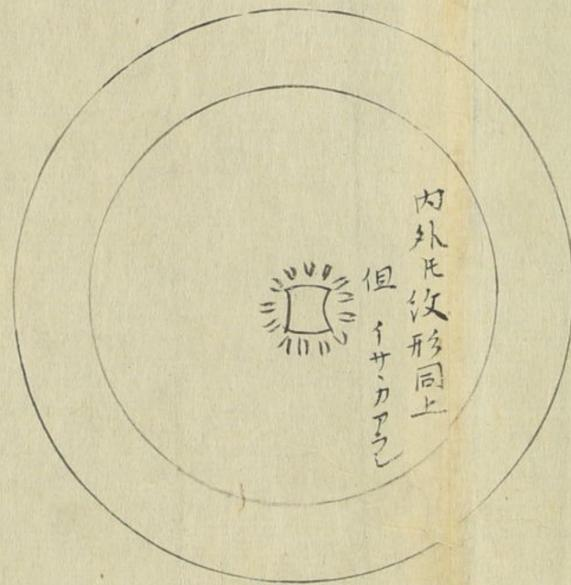 内外圧紋形同上
但イサヽカアラシ